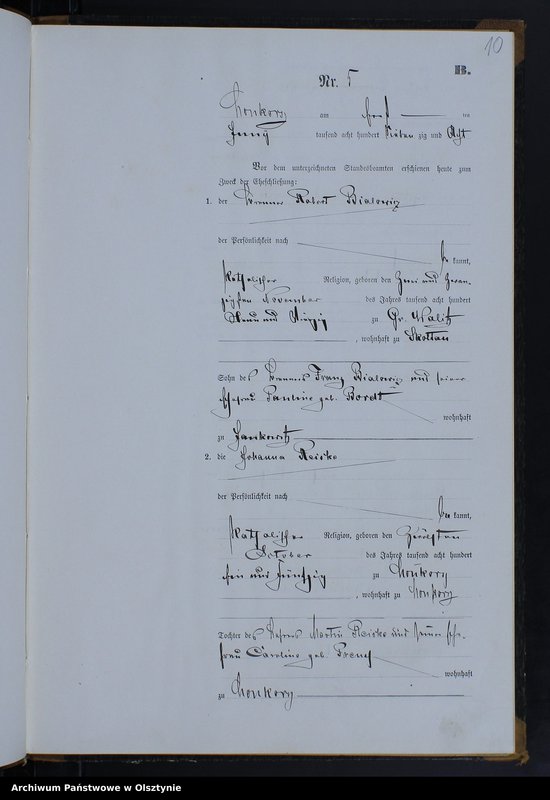 10
B.
Nr. 5
am
ten
Juny tausend acht hundert sieben zig und Acht
Vor dem unterzeichneten Standesbeamten erschienen heute zum
Zweck der Eheschließung:
1. der Brenner Robert Bialowiz
der Persönlichkeit nach
be kannt,
Katholischer Religion, geboren den Zwei und Zwan-
zigsten November des Jahres tausend acht hundert
Neun und Vierzig zu Gr.
, wohnhaft zu Skottau
Sohn des Brenners Franz Bialowiz und seiner
Ehefrau Pauline geb. Bordt
wohnhaft
zu Jankowitz
2. die Johanna Reiske
der Persönlichkeit nach
be kannt,
Katholischer Religion, geboren den Zwölften
October des Jahres tausend acht hundert
Ein und Fünfzig zu Thonkory
, wohnhaft zu Thonkory
Tochter des Martin Reiske und seiner Ehe-
frau Caroline geb.
wohnhaft
zu Thonkory
Archiwum Państwowe w Olsztynie